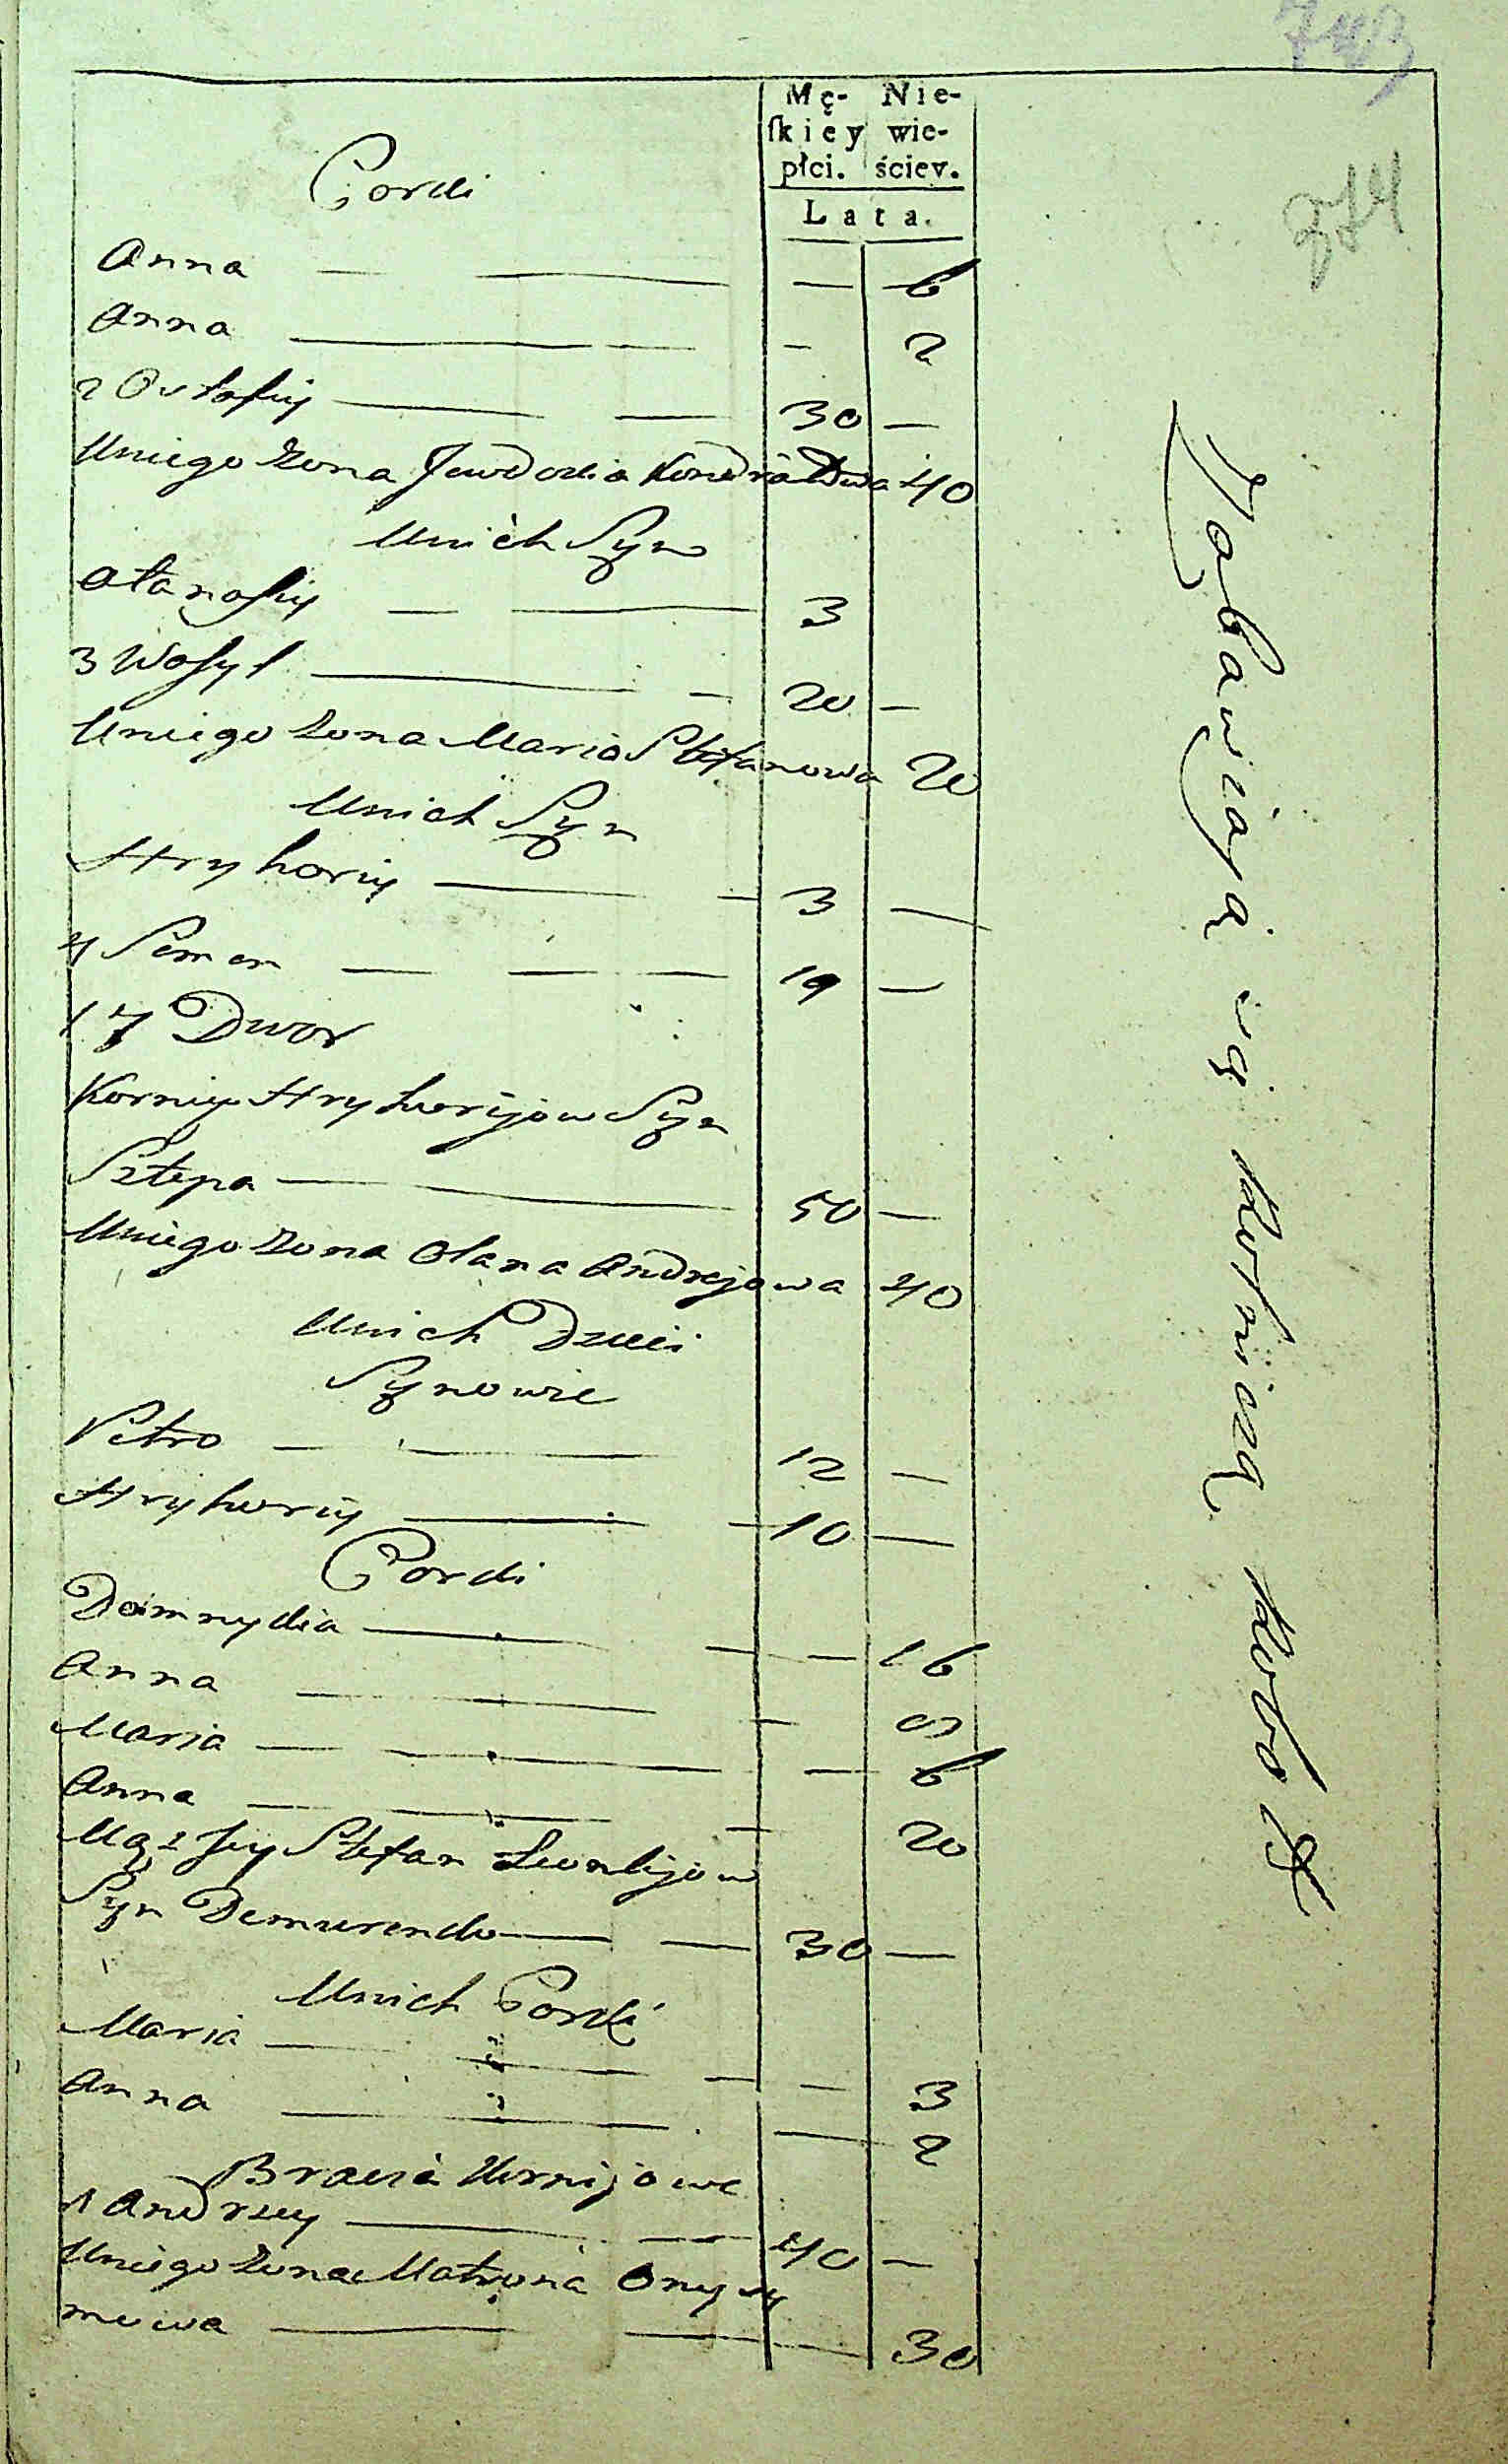 743
274
Mę- Nie-
ſkiey wie-
płci. ściey.
Lata.
Corki
Anna — — — 6
Anna — — — 2
2 Ostafiy — — 30 —
Uniego Zona Jewdokia Kondratowa 40
Unich Syn
Atanafiy — — 3
3 Wasyl — — 20 —
Uniego Zona Maria Stefanowa 20
Unich Syn
Hryhoriy — — 3 —
4 Semen — — — 19 —
17 Dwor
Korniy Hryhorijow Syn
Sztepa — — 50 —
Uniego Zona Olana Andrejowa 40
Unich Dzieci
Synowie
Petro — — 12 —
Hryhoriy — — 10 —
Corki
Domnykia — — — 16
Anna — — — 9
Maria — — — 6
Anna — — — 20
Mąż Jey Stefan Leontijow
Syn Demurenko — — 30 —
Unich Corki
Maria — — — — 3
Anna — — — 2
Bracia Kornijowe
1 Andrzey — — 40 —
Uniego Zona Matrona Onysy
mowa — — — 30
Zabawiaią się Rolniczą Robotą